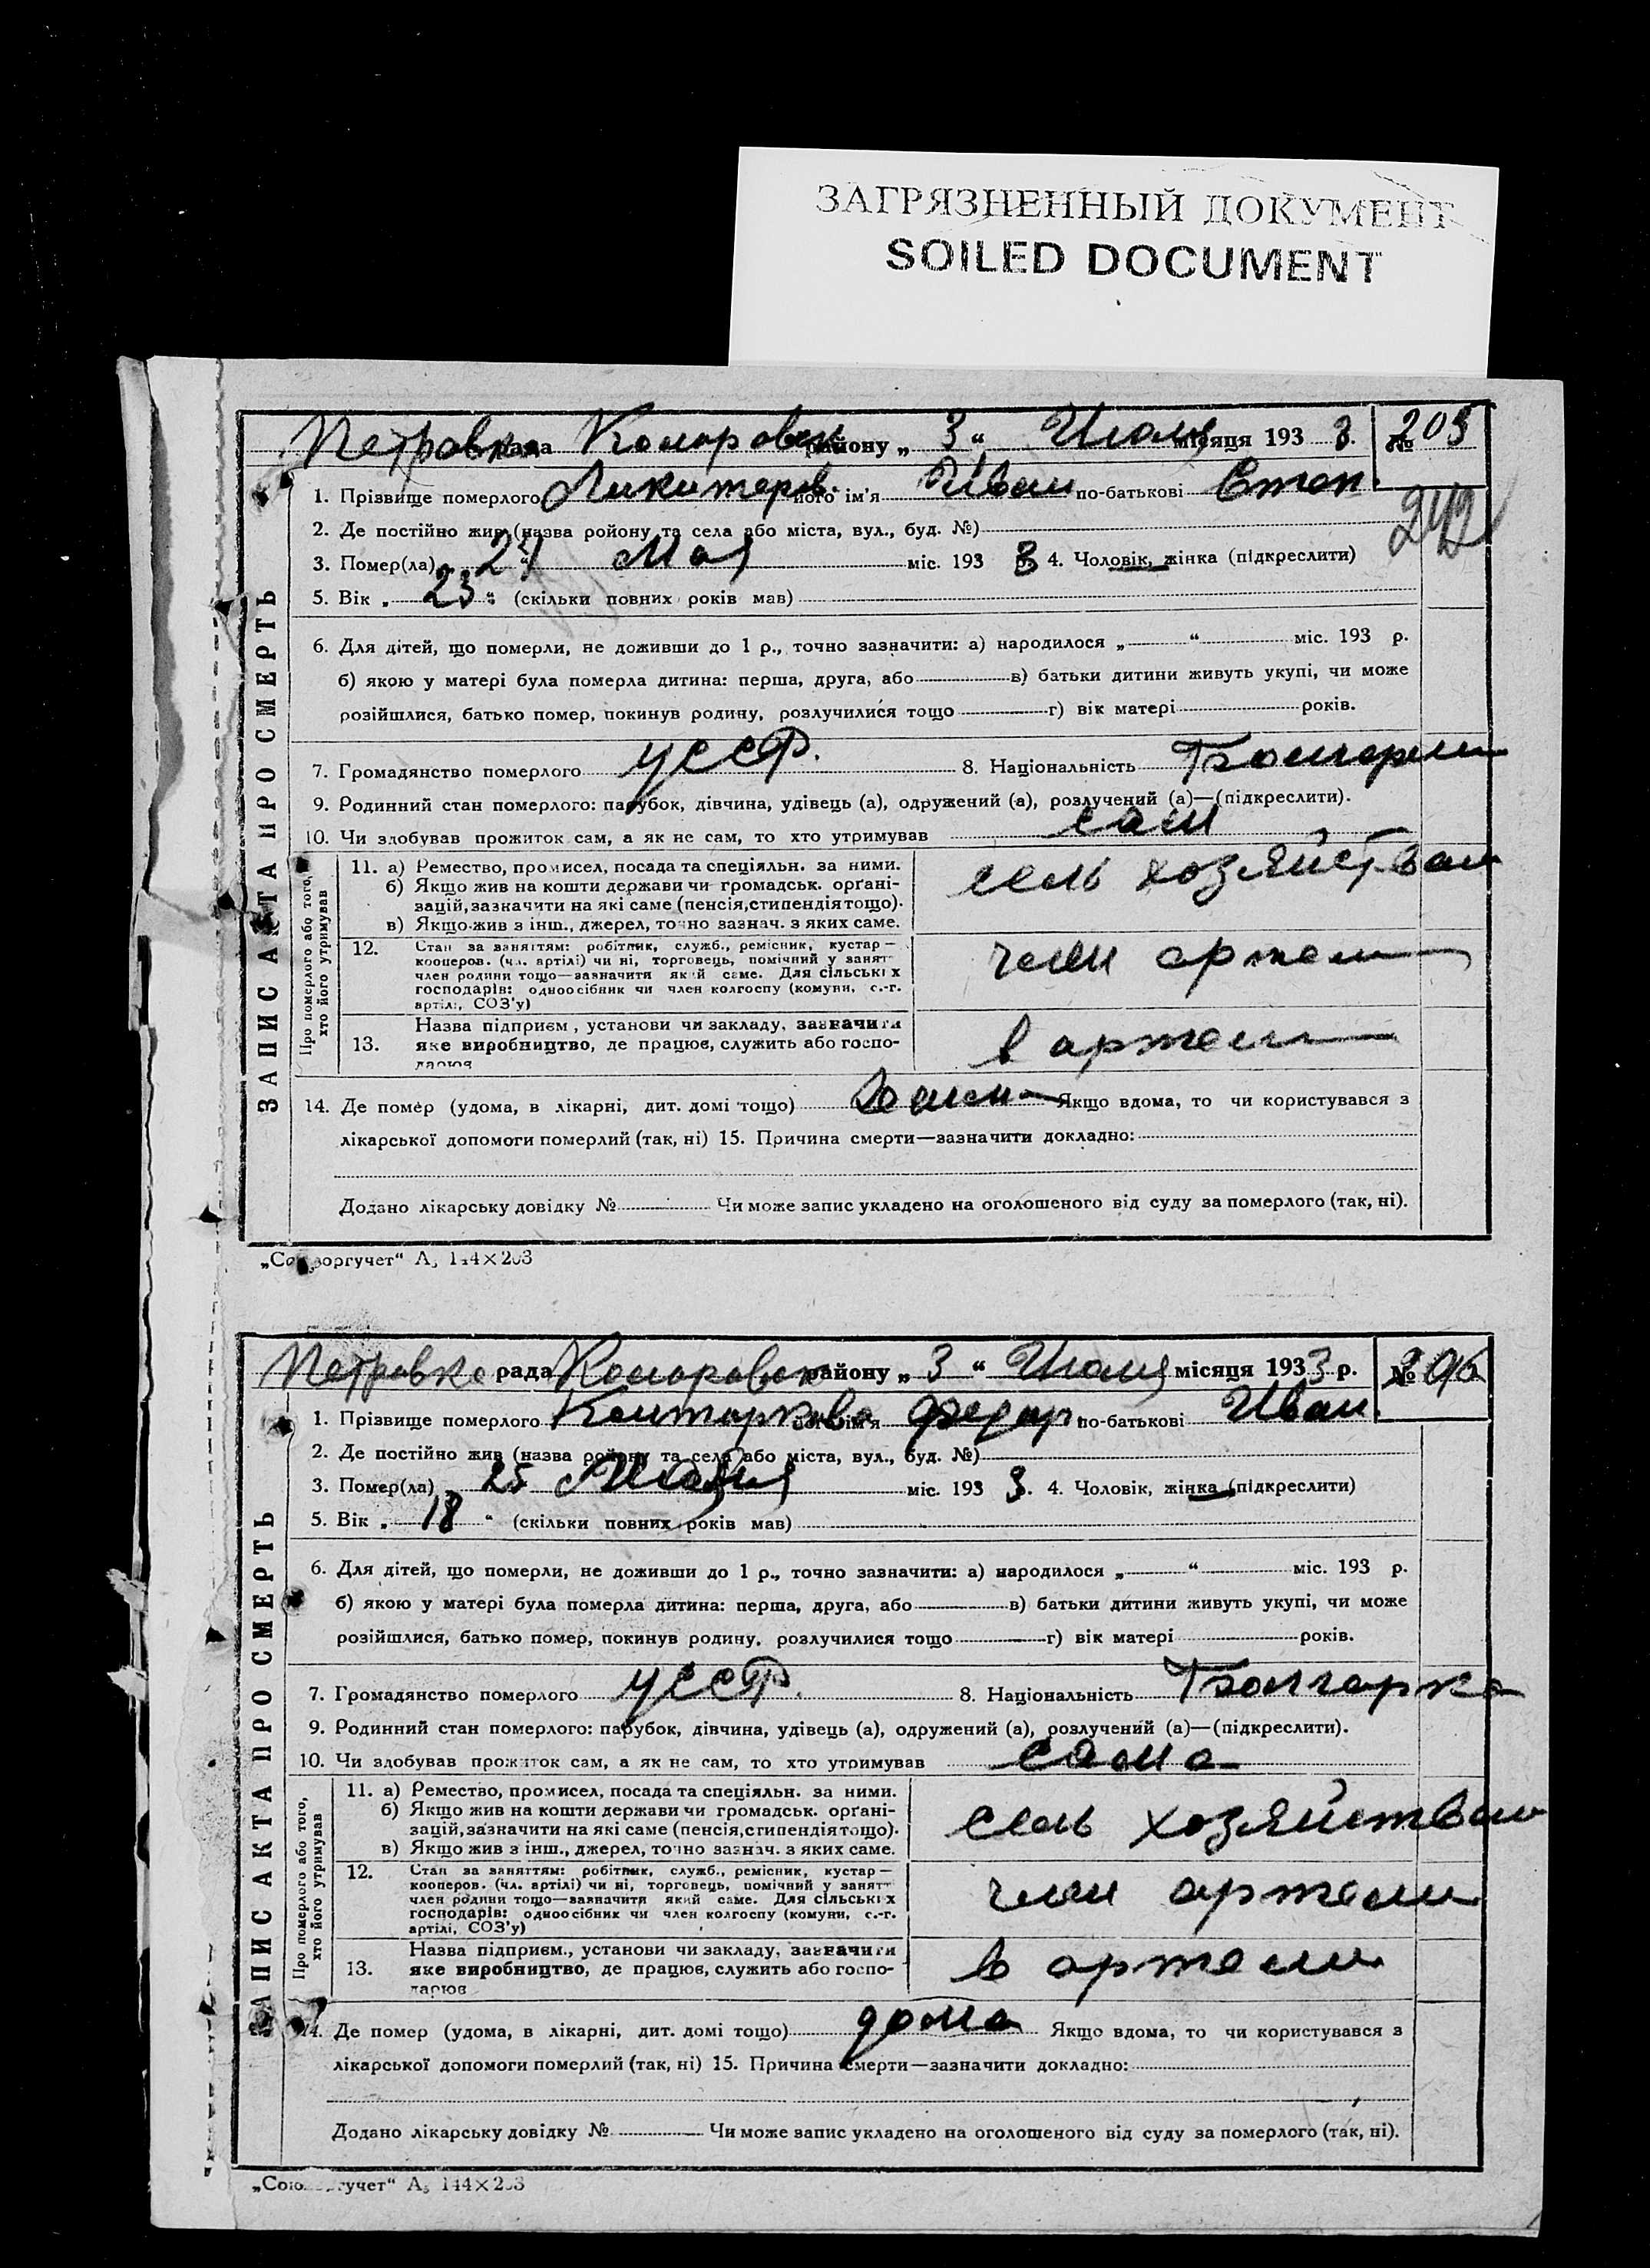 ЗАГРЯЗНЕННЫЙ ДОКУМЕНТ
SOILED DOCUMENT
Петровка рада Комаровск району „ 3 “ Июля місяця 193 3. № 205
1. Прізвище померлого його ім'я Иван по-батькові Степ.
242
2. Де постійно жив (назва ройону та села або міста, вул., буд. №)
3. Помер(ла) „ 24 “ Мая міс. 193 3 4. Чоловік, жінка (підкреслити)
5. Вік „ 23 “ (скільки повних років мав)
6. Для дітей, що померли, не доживши до 1 р., точно зазначити: а) народилося „ “ міс. 193 р.
б) якою у матері була померла дитина: перша, друга, або в) батьки дитини живуть укупі, чи може
розійшлися, батько помер, покинув родину, розлучилися тощо г) вік матері років.
7. Громадянство померлого УССР. 8. Національність
9. Родинний стан померлого: парубок, дівчина, удівець (а), одружений (а), розлучений (а)—(підкреслити).
10. Чи здобував прожиток сам, а як не сам, то хто утримував сам
ЗАПИС АКТА ПРО СМЕРТЬ
Про померлого або того, хто його утримував
11. а) Ремество, промисел, посада та спеціяльн. за ними.
б) Якщо жив на кошти держави чи громадськ. орґані-
зацій, зазначити на які саме (пенсія, стипендія тощо).
в) Якщо жив з інш., джерел, точно зазнач. з яких саме.
сель хозяйствам
12. Стан за заняттям: робітник, служб., ремісник, кустар—
кооперов. (чл. артілі) чи ні, торговець, помічний у занят
член родини тощо—зазначити який саме. Для сільських
господарів: одноосібник чи член колгоспу (комуни, с.-г.
артілі, СОЗ'у)
член артели
13. Назва підприєм., установи чи закладу, зазначити
яке виробництво, де працює, служить або госпо-
дарює
в артели
14. Де помер (удома, в лікарні, дит. домі тощо) дома Якщо вдома, то чи користувався з
лікарської допомоги померлий (так, ні) 15. Причина смерти—зазначити докладно:
Додано лікарську довідку № Чи може запис укладено на оголошеного від суду за померлого (так, ні).
„Союзоргучет“ А₅ 144×203
Петровка рада Комаровск району „ 3 “ Июля місяця 193 3 р. № 206
1. Прізвище померлого його ім'я Федор по-батькові Иван.
2. Де постійно жив (назва ройону та села або міста, вул., буд. №)
3. Помер(ла) „ 25 міс. 193 3. 4. Чоловік, жінка (підкреслити)
5. Вік „ 18 “ (скільки повних років мав)
6. Для дітей, що померли, не доживши до 1 р., точно зазначити: а) народилося „ “ міс. 193 р.
б) якою у матері була померла дитина: перша, друга, або в) батьки дитини живуть укупі, чи може
розійшлися, батько помер, покинув родину, розлучилися тощо г) вік матері років.
7. Громадянство померлого УССР. 8. Національність Болгарка
9. Родинний стан померлого: парубок, дівчина, удівець (а), одружений (а), розлучений (а)—(підкреслити).
10. Чи здобував прожиток сам, а як не сам, то хто утримував сама
ЗАПИС АКТА ПРО СМЕРТЬ
Про померлого або того, хто його утримував
11. а) Ремество, промисел, посада та спеціяльн. за ними.
б) Якщо жив на кошти держави чи громадськ. орґані-
зацій, зазначити на які саме (пенсія, стипендія тощо).
в) Якщо жив з інш., джерел, точно зазнач. з яких саме.
сель хозяйствам
12. Стан за заняттям: робітник, служб., ремісник, кустар—
кооперов. (чл. артілі) чи ні, торговець, помічний у занят
член родини тощо—зазначити який саме. Для сільських
господарів: одноосібник чи член колгоспу (комуни, с.-г.
артілі, СОЗ'у)
член артели
13. Назва підприєм., установи чи закладу, зазначити
яке виробництво, де працює, служить або госпо-
дарює
в артели
14. Де помер (удома, в лікарні, дит. домі тощо) дома Якщо вдома, то чи користувався з
лікарської допомоги померлий (так, ні) 15. Причина смерти—зазначити докладно:
Додано лікарську довідку № Чи може запис укладено на оголошеного від суду за померлого (так, ні).
„Союзоргучет“ А₅ 144×203